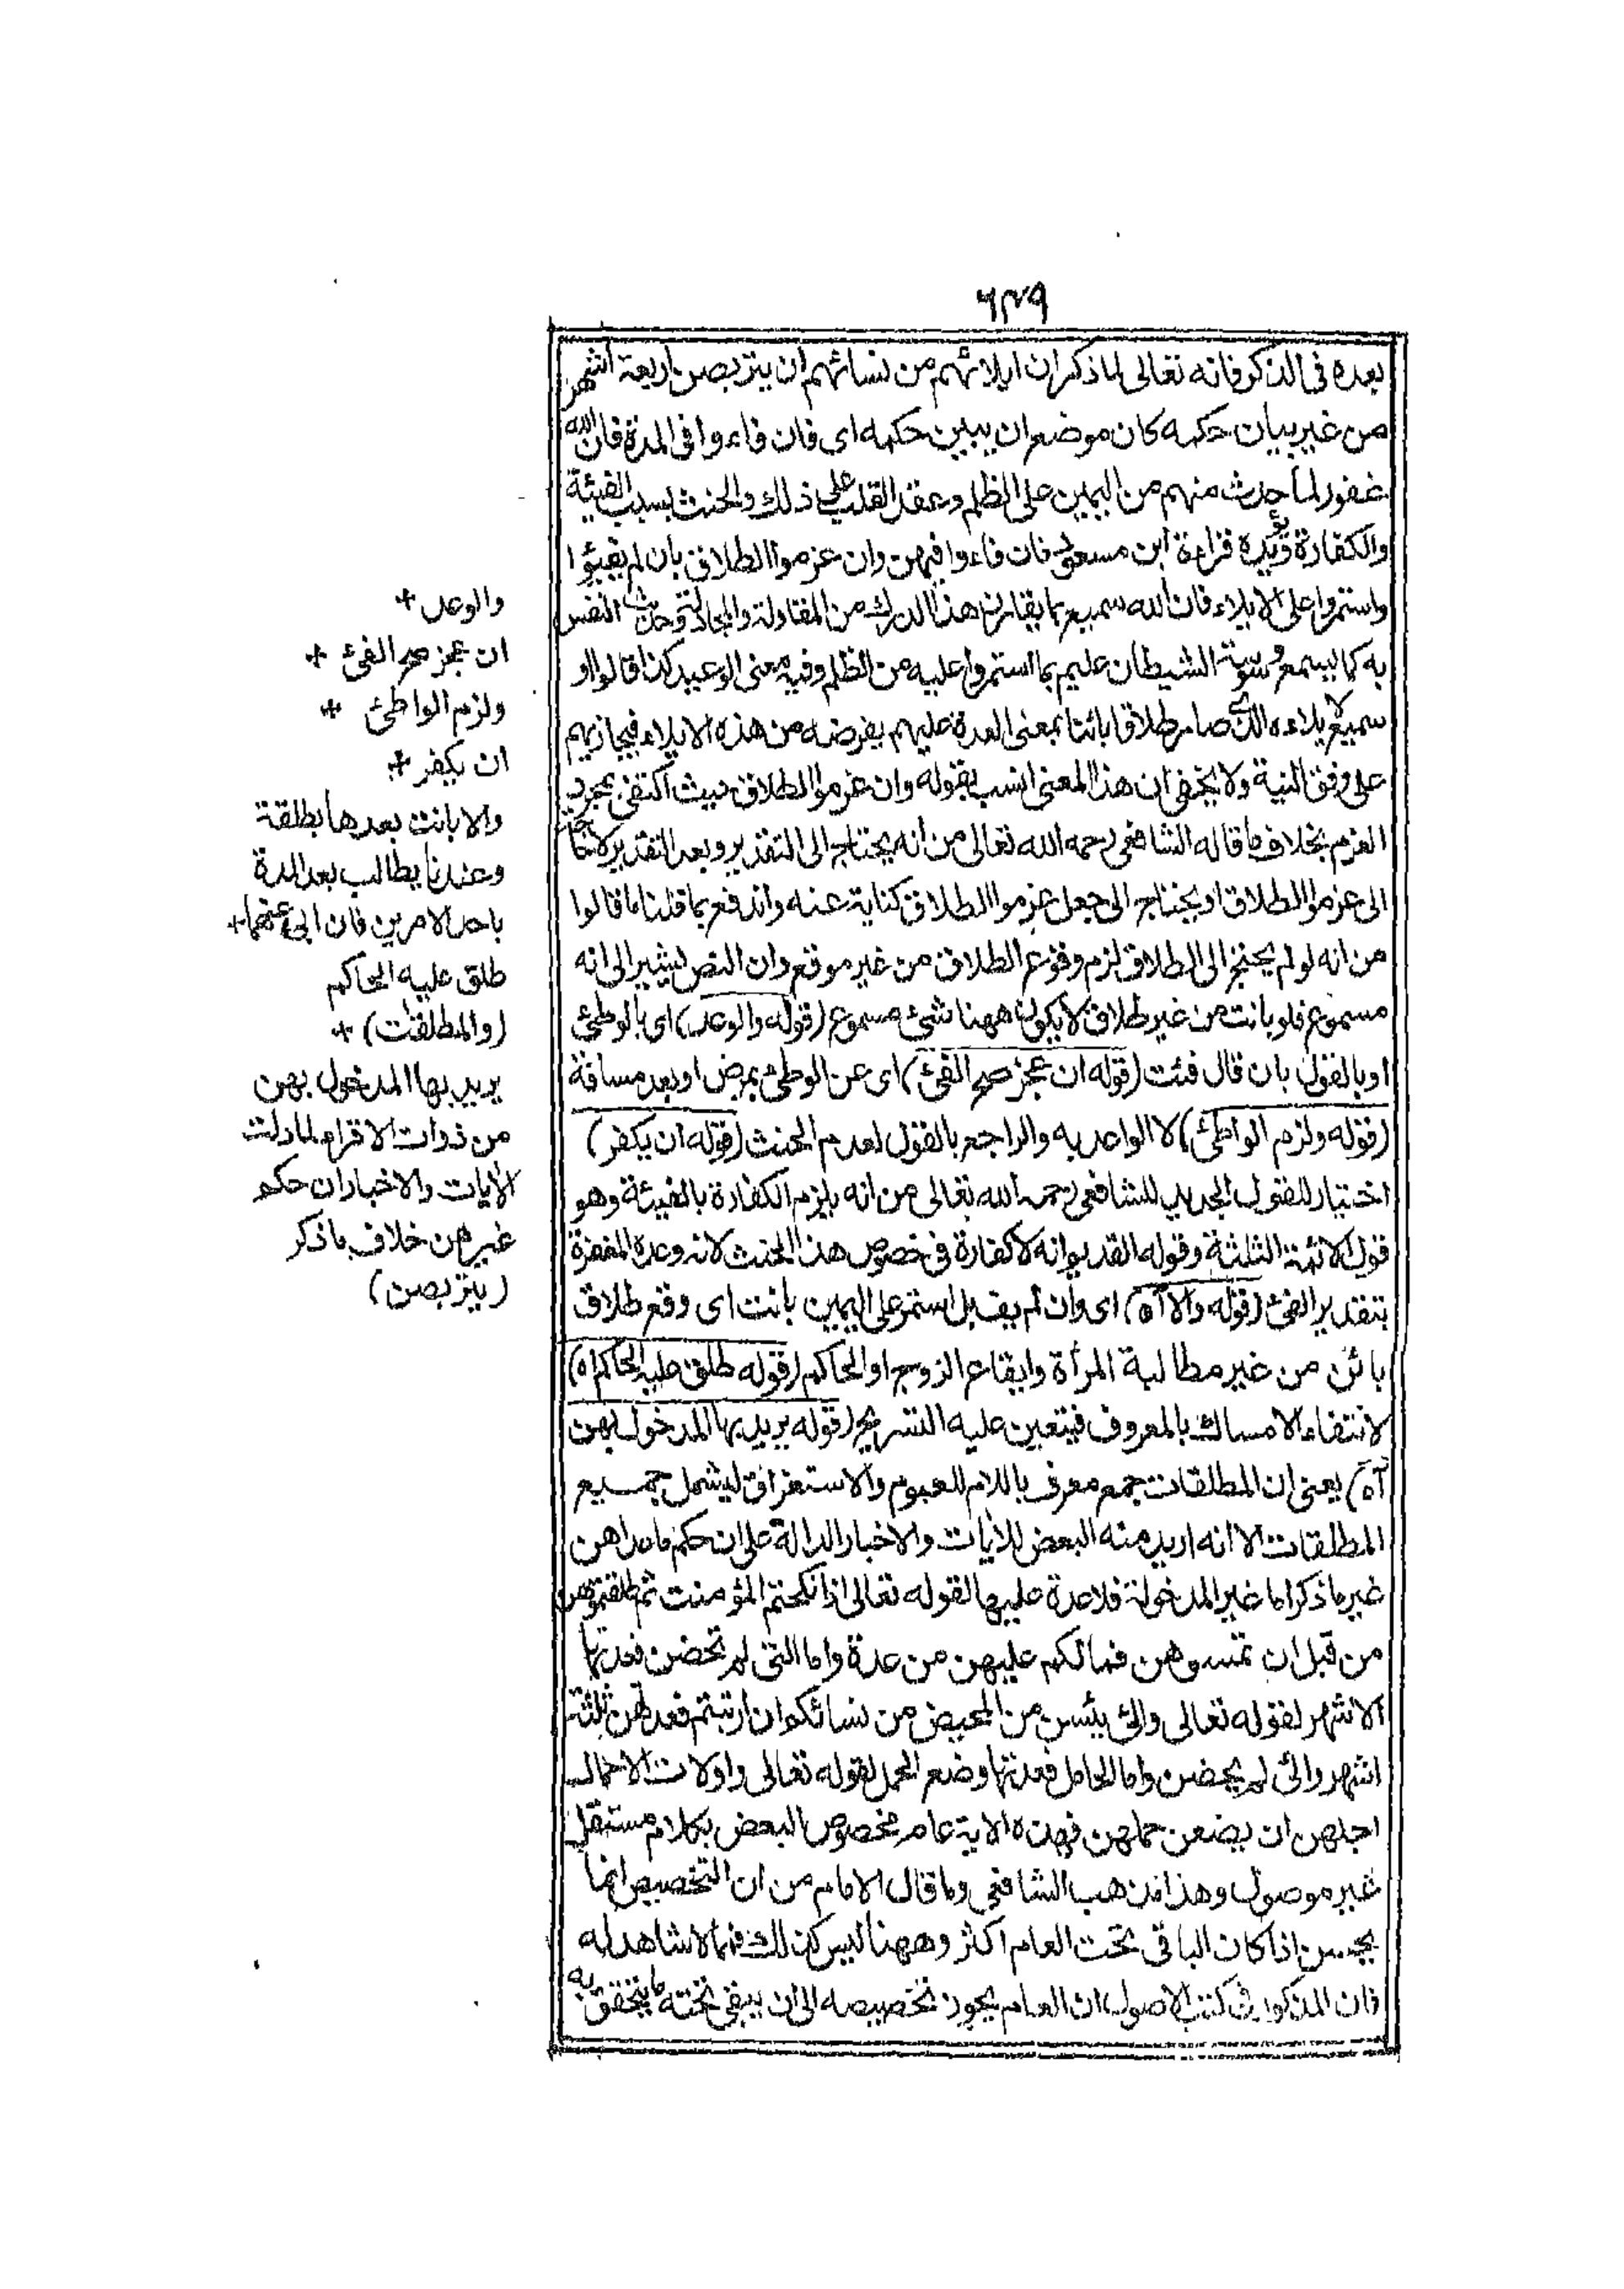 ٦٢٩
بعده فى الذكر فانه تعالى لما ذكر ان ايلائهم من نسائهم ان يتربصن اربعة اشهر
من غير بيان حكمه كان موضع ان يبين حكمه اى فان فاءوا فى المدة فان الله
غفور لما حدث منهم من اليمين على الظلم وعقد القلب على ذلك والحنث بسبب الفيئة
والكفارة ويؤيده قراءة ابن مسعود فان فاءوا فيهن وان عزموا الطلاق بان لم يفيئوا
واستمروا على الايلاء فان الله سميع بما يقارن هذا الترك من المقاولة والمجادلة وحديث النفس
به كما يسمع وسوسة الشيطان عليم بما استمروا عليه من الظلم وفيه معنى الوعيد كذا قالوا او
سميع لايلاءه الذى صار طلاقا بائنا بمعنى العدة عليهم بغرضه من هذه الايلاء فيجازيهم
على وفق النية ولا يخفى ان هذا المعنى انسب بقوله وان عزموا الطلاق حيث اكتفى بمجرد
العزم بخلاف ما قاله الشافعى رحمه الله تعالى من انه يحتاج الى التقدير وبعد التقدير لا حاجة
الى عزموا الطلاق او يحتاج الى جعل عزموا الطلاق كناية عنه واندفع بما قلنا ما قالوا
من انه لو لم يحتج الى الطلاق لزم وقوع الطلاق من غير موقع وان النص يشير الى انه
مسموع فلو بانت من غير طلاق لا يكون ههنا شئ مسموع (قوله والوعد) اى بالوطئ
او بالقول بان قال فئت (قوله ان عجز صح الفئ) اى عن الوطئ بمرض او بعد مسافة
(قوله ولزم الواطئ) لا الواعد به والراجع بالقول لعدم الحنث (قوله ان يكفر)
اختيار للقول الجديد للشافعى رحمه الله تعالى من انه يلزم الكفارة بالفيئة وهو
قول الائمة الثلثة وقوله القديم انه لا كفارة فى خصوص هذا الحنث لانه وعده المغفرة
بتقدير الفئ (قوله والا آه) اى وان لم يف بل استمر على اليمين بانت اى وقع طلاق
بائن من غير مطالبة المرأة وايقاع الزوج او الحاكم (قوله طلق عليه الحاكم اه)
لانتفاء الامساك بالمعروف فيتعين عليه التسريح (قوله يريد بها المدخول بهن
آه) يعنى ان المطلقات جمع معرف باللام للعموم والاستغراق ليشمل جميع
المطلقات الا انه اريد منه البعض للآيات والاخبار الدالة على ان حكم ما عداهن
غير ما ذكر اما غير المدخولة فلا عدة عليها لقوله تعالى اذا نكحتم المؤمنت ثم طلقتموهن
من قبل ان تمسوهن فما لكم عليهن من عدة واما التى لم تحضن فعدتها
الاشهر لقوله تعالى والئ يئسن من المحيض من نسائكم ان ارتبتم فعدتهن ثلثة
اشهر والئ لم يحضن واما الحامل فعدتها وضع الحمل لقوله تعالى واولات الاحمال
اجلهن ان يضعن حملهن فهذه الاية عام مخصوص البعض بكلام مستقل
غير موصول وهذا مذهب الشافعى وما قال الامام من ان التخصيص انما
يحسن اذا كان الباقى تحت العام اكثر وههنا ليس كذلك فمما لا شاهد له
فان المذكور فى كتب الاصول ان العام يجوز تخصيصه الى ان يبقى تحته ما يتحقق به
والوعد +
ان عجز صح الفئ +
ولزم الواطئ +
ان يكفر +
والا بانت بعدها بطلقة
وعندنا يطالب بعد المدة
باحد الامرين فان ابى عنهما +
طلق عليه الحاكم
(والمطلقت) +
يريد بها المدخول بهن
من ذوات الاقراء لما دلت
الآيات والاخبار ان حكم
غيرهن خلاف ما ذكر
(يتربصن)